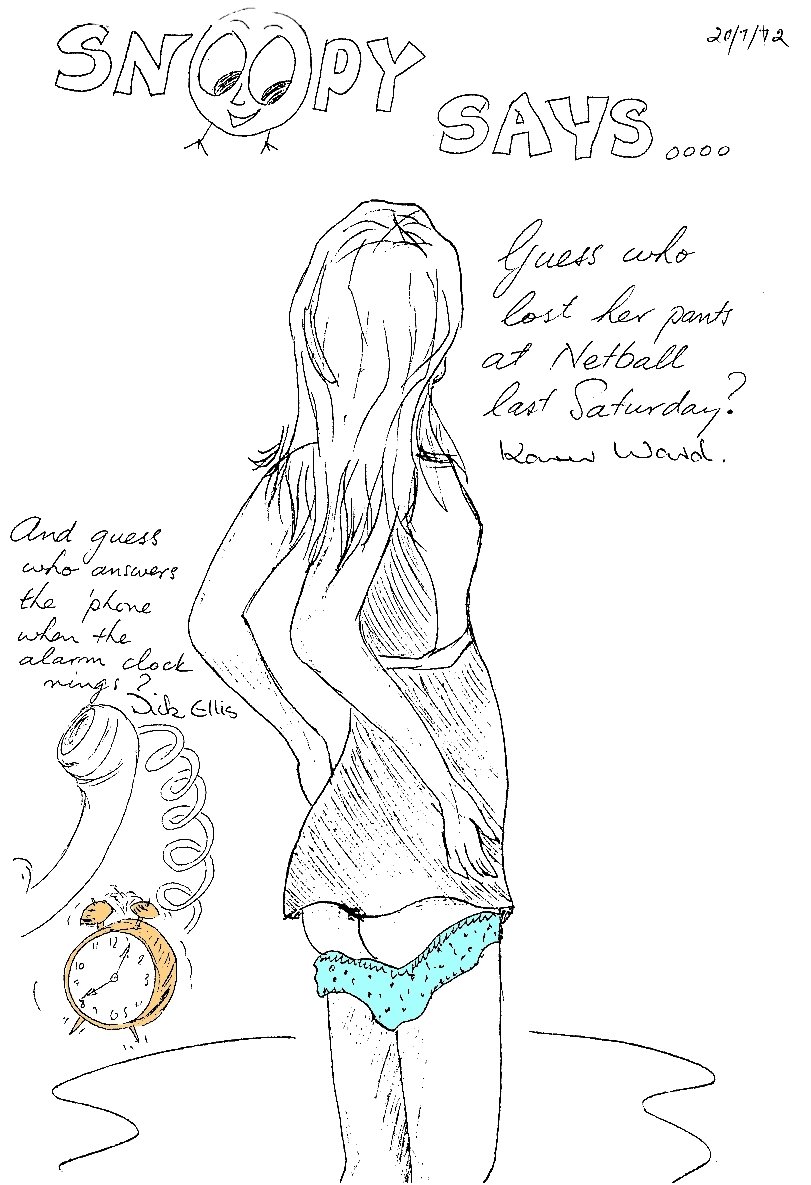 SNOOPY SAYS....
20/7/72
Guess who
lost her pants
at Netball
last Saturday?
Karen Ward.
And guess
who answers
the 'phone
when the
alarm clock
rings?
Dick Ellis